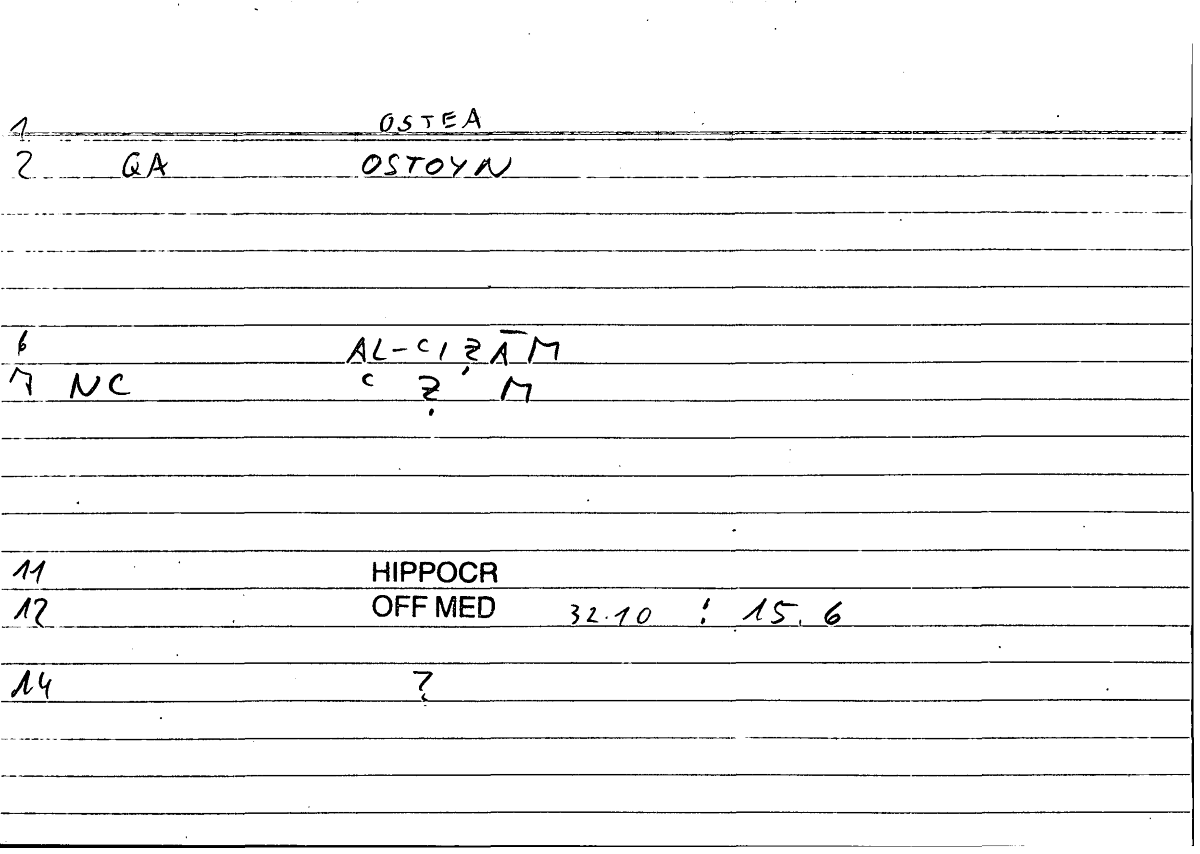 1 OSTEA
2 QA OSTOYN
6 AL-ʿIẒĀM
7 NC ʿ Ẓ M
11 HIPPOCR
12 OFF MED 32.10 : 15.6
14 ?